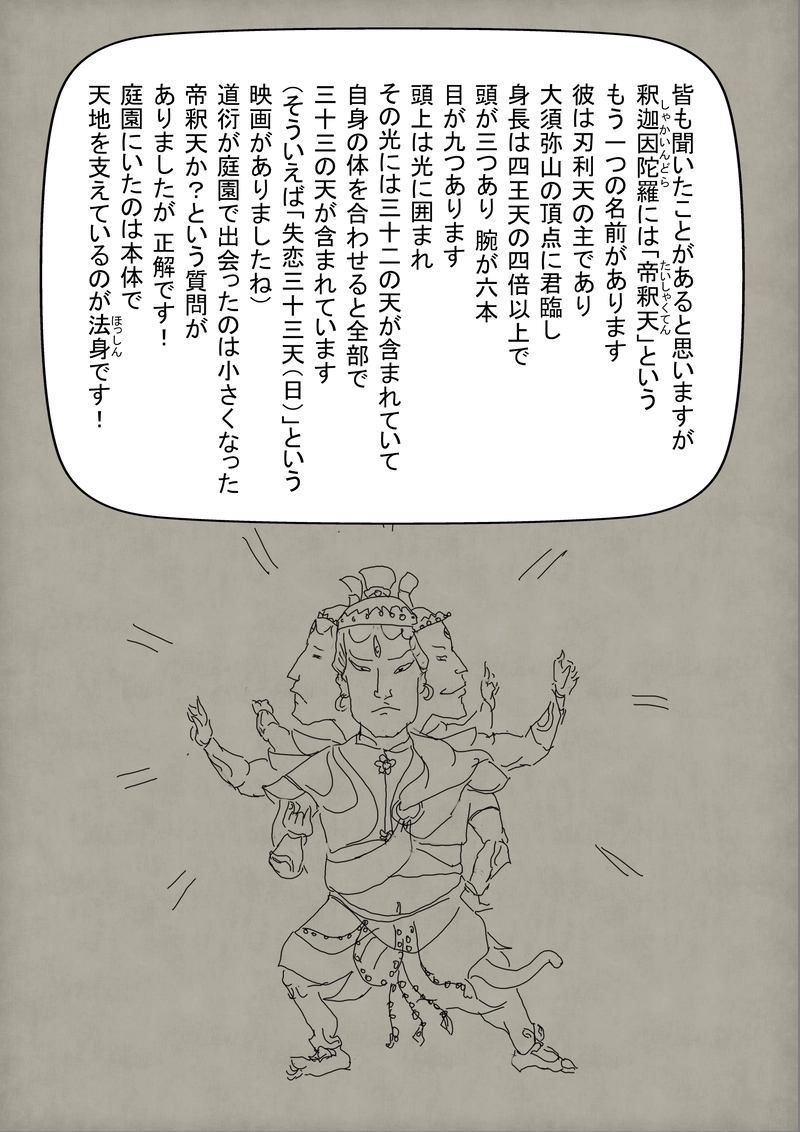 皆も聞いたことがあると思いますが
釈迦因陀羅には「帝釈天」という
しゃかいんどら
たいしゃくてん
もう一つの名前があります
彼は刃利天の主であり
大須弥山の頂点に君臨し
身長は四王天の四倍以上で
頭が三つあり 腕が六本
目が九つあります
頭上は光に囲まれ
その光には三十二の天が含まれていて
自身の体を合わせると全部で
三十三の天が含まれています
(そういえば「失恋三十三天(日)」という
映画がありましたね)
道衍が庭園で出会ったのは小さくなった
帝釈天か?という質問が
ありましたが 正解です!
庭園にいたのは本体で
天地を支えているのが法身です!
ほっしん